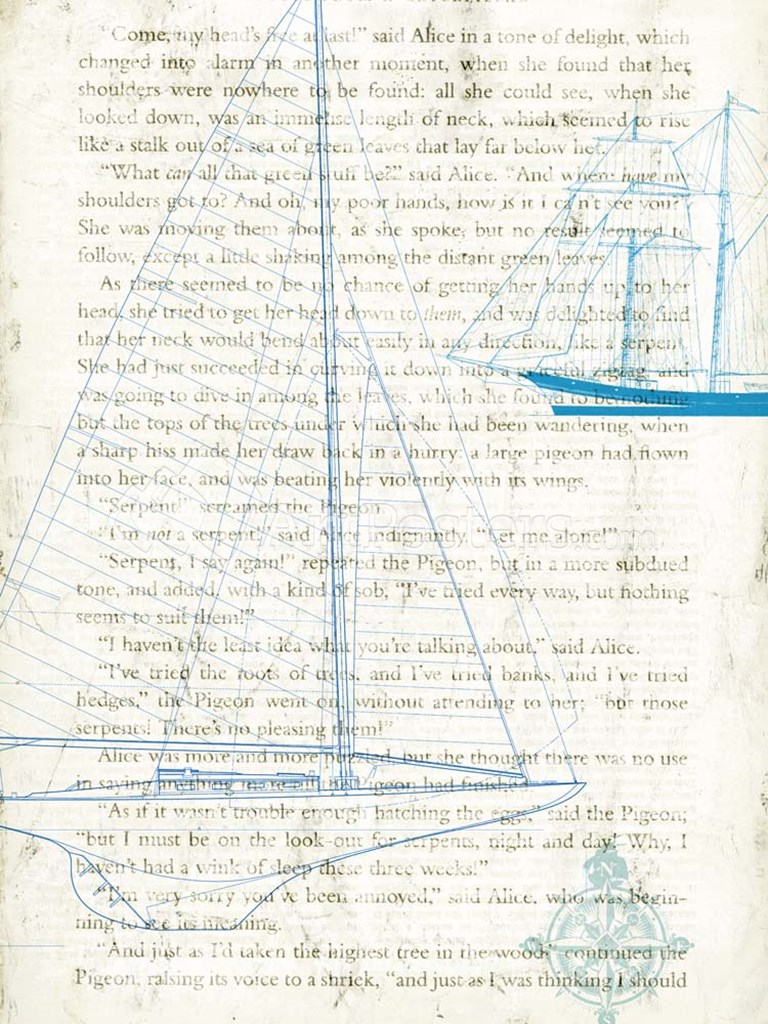 "Come, my head's free at last!" said Alice in a tone of delight, which
changed into alarm in another moment, when she found that her
shoulders were nowhere to be found: all she could see, when she
looked down, was an immense length of neck, which seemed to rise
like a stalk out of a sea of green leaves that lay far below her.
"What can all that green stuff be?" said Alice. "And where have my
shoulders got to? And oh, my poor hands, how is it I can't see you?"
She was moving them about, as she spoke, but no result seemed to
follow, except a little shaking among the distant green leaves.
As there seemed to be no chance of getting her hands up to her
head, she tried to get her head down to them, and was delighted to find
that her neck would bend about easily in any direction, like a serpent.
She had just succeeded in curving it down into a graceful zigzag, and
was going to dive in among the leaves, which she found to be nothing
but the tops of the trees under which she had been wandering, when
a sharp hiss made her draw back in a hurry: a large pigeon had flown
into her face, and was beating her violently with its wings.
"Serpent!" screamed the Pigeon.
"I'm not a serpent!" said Alice indignantly. "Let me alone!"
"Serpent, I say again!" repeated the Pigeon, but in a more subdued
tone, and added, with a kind of sob, "I've tried every way, but nothing
seems to suit them!"
"I haven't the least idea what you're talking about," said Alice.
"I've tried the roots of trees, and I've tried banks, and I've tried
hedges," the Pigeon went on, without attending to her; "but those
serpents! There's no pleasing them!"
Alice was more and more puzzled, but she thought there was no use
in saying anything more till the Pigeon had finished.
"As if it wasn't trouble enough hatching the eggs," said the Pigeon;
"but I must be on the look-out for serpents, night and day! Why, I
haven't had a wink of sleep these three weeks!"
"I'm very sorry you've been annoyed," said Alice, who was begin-
ning to see its meaning.
"And just as I'd taken the highest tree in the wood," continued the
Pigeon, raising its voice to a shriek, "and just as I was thinking I should
N